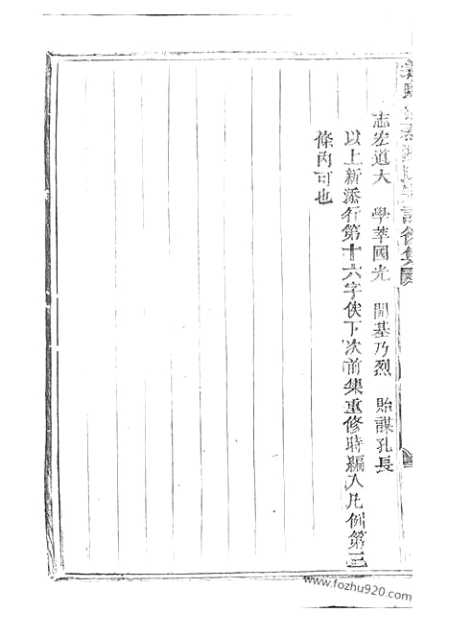 志宏道大　學萃國光　開基乃烈　貽謀孔長
以上新添行第十六字俟下次前集重修時編入凡例第三
條內可也
www.fozhu920.com